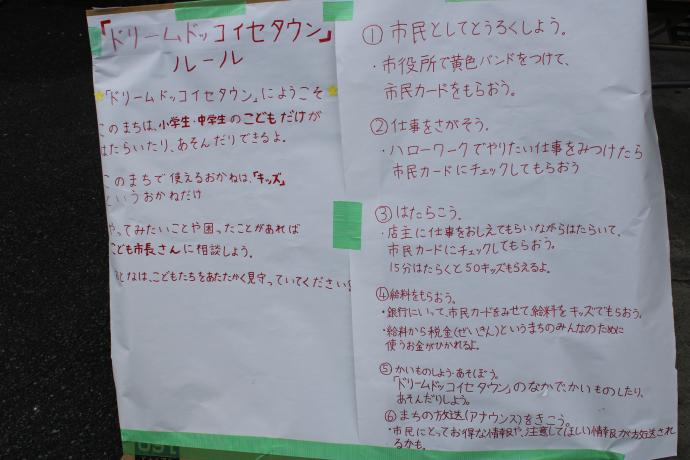 「ドリームドッコイセタウン」
ルール
「ドリームドッコイセタウン」にようこそ
このまちは、小学生・中学生のこどもだけが
はたらいたり、あそんだりできるよ。
このまちで使えるおかねは、「キッズ」
というおかねだけ
やってみたいことや困ったことがあれば
こども市長さんに相談しよう。
おとなは、こどもたちをあたたかく見守っていてください
① 市民としてとうろくしよう。
・市役所で黄色バンドをつけて、
市民カードをもらおう。
② 仕事をさがそう。
・ハローワークでやりたい仕事をみつけたら
市民カードにチェックしてもらおう
③ はたらこう。
・店主に仕事をおしえてもらいながらはたらいて、
市民カードにチェックしてもらおう。
15分はたらくと50キッズもらえるよ。
④給料をもらおう。
・銀行にいって、市民カードをみせて給料をキッズでもらおう。
・給料から税金(ぜいきん)というまちのみんなのために
使うお金がひかれるよ。
⑤ かいものしよう・あそぼう。
「ドリームドッコイセタウン」のなかで、かいものしたり、
あそんだりしよう。
⑥ まちの放送(アナウンス)をきこう。
・市民にとってお得な情報や、注意してほしい情報が放送され
るかも。